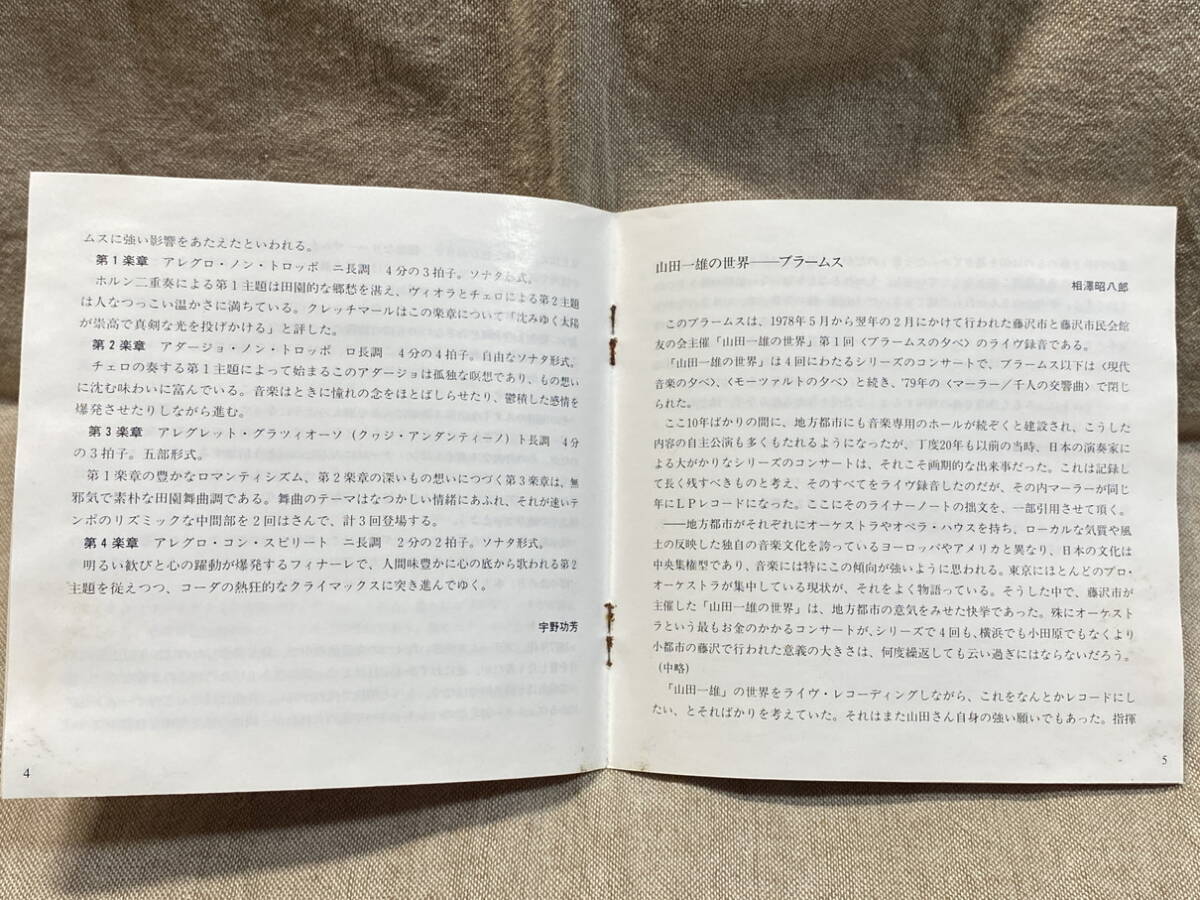 ムスに強い影響をあたえたといわれる。
第1楽章　アレグロ・ノン・トロッポ　ニ長調　4分の3拍子。ソナタ形式。
ホルン二重奏による第1主題は田園的な郷愁を湛え、ヴィオラとチェロによる第2主題
は人なつっこい温かさに満ちている。クレッチマールはこの楽章について「沈みゆく太陽
が崇高で真剣な光を投げかける」と評した。
第2楽章　アダージョ・ノン・トロッポ　ロ長調　4分の4拍子。自由なソナタ形式。
チェロの奏する第1主題によって始まるこのアダージョは孤独な瞑想であり、もの想い
に沈む味わいに富んでいる。音楽はときに憧れの念をほとばしらせたり、鬱積した感情を
爆発させたりしながら進む。
第3楽章　アレグレット・グラツィオーソ（クヮジ・アンダンティーノ）ト長調　4分
の3拍子。五部形式。
第1楽章の豊かなロマンティシズム、第2楽章の深いもの想いにつづく第3楽章は、無
邪気で素朴な田園舞曲調である。舞曲のテーマはなつかしい情緒にあふれ、それが速いテ
ンポのリズミックな中間部を2回はさんで、計3回登場する。
第4楽章　アレグロ・コン・スピリート　ニ長調　2分の2拍子。ソナタ形式。
明るい歓びと心の躍動が爆発するフィナーレで、人間味豊かに心の底から歌われる第2
主題を従えつつ、コーダの熱狂的なクライマックスに突き進んでゆく。
宇野功芳
4
山田一雄の世界――ブラームス
相澤昭八郎
このブラームスは、1978年5月から翌年の2月にかけて行われた藤沢市と藤沢市民会館
友の会主催「山田一雄の世界」第1回〈ブラームスの夕べ〉のライヴ録音である。
「山田一雄の世界」は4回にわたるシリーズのコンサートで、ブラームス以下は〈現代
音楽の夕べ〉、〈モーツァルトの夕べ〉と続き、'79年の〈マーラー／千人の交響曲〉で閉じ
られた。
ここ10年ばかりの間に、地方都市にも音楽専用のホールが続ぞくと建設され、こうした
内容の自主公演も多くもたれるようになったが、丁度20年も以前の当時、日本の演奏家
による大がかりなシリーズのコンサートは、それこそ画期的な出来事だった。これは記録し
て長く残すべきものと考え、そのすべてをライヴ録音したのだが、その内マーラーが同じ
年にLPレコードになった。ここにそのライナーノートの拙文を、一部引用させて頂く。
――地方都市がそれぞれにオーケストラやオペラ・ハウスを持ち、ローカルな気質や風
土の反映した独自の音楽文化を誇っているヨーロッパやアメリカと異なり、日本の文化は
中央集権型であり、音楽には特にこの傾向が強いように思われる。東京にほとんどのプロ・
オーケストラが集中している現状が、それをよく物語っている。そうした中で、藤沢市が
主催した「山田一雄の世界」は、地方都市の意気をみせた快挙であった。殊にオーケスト
ラという最もお金のかかるコンサートが、シリーズで4回も、横浜でも小田原でもなくより
小都市の藤沢で行われた意義の大きさは、何度繰返しても云い過ぎにはならないだろう。
（中略）
「山田一雄」の世界をライヴ・レコーディングしながら、これをなんとかレコードにし
たい、とそればかりを考えていた。それはまた山田さん自身の強い願いでもあった。指揮
5